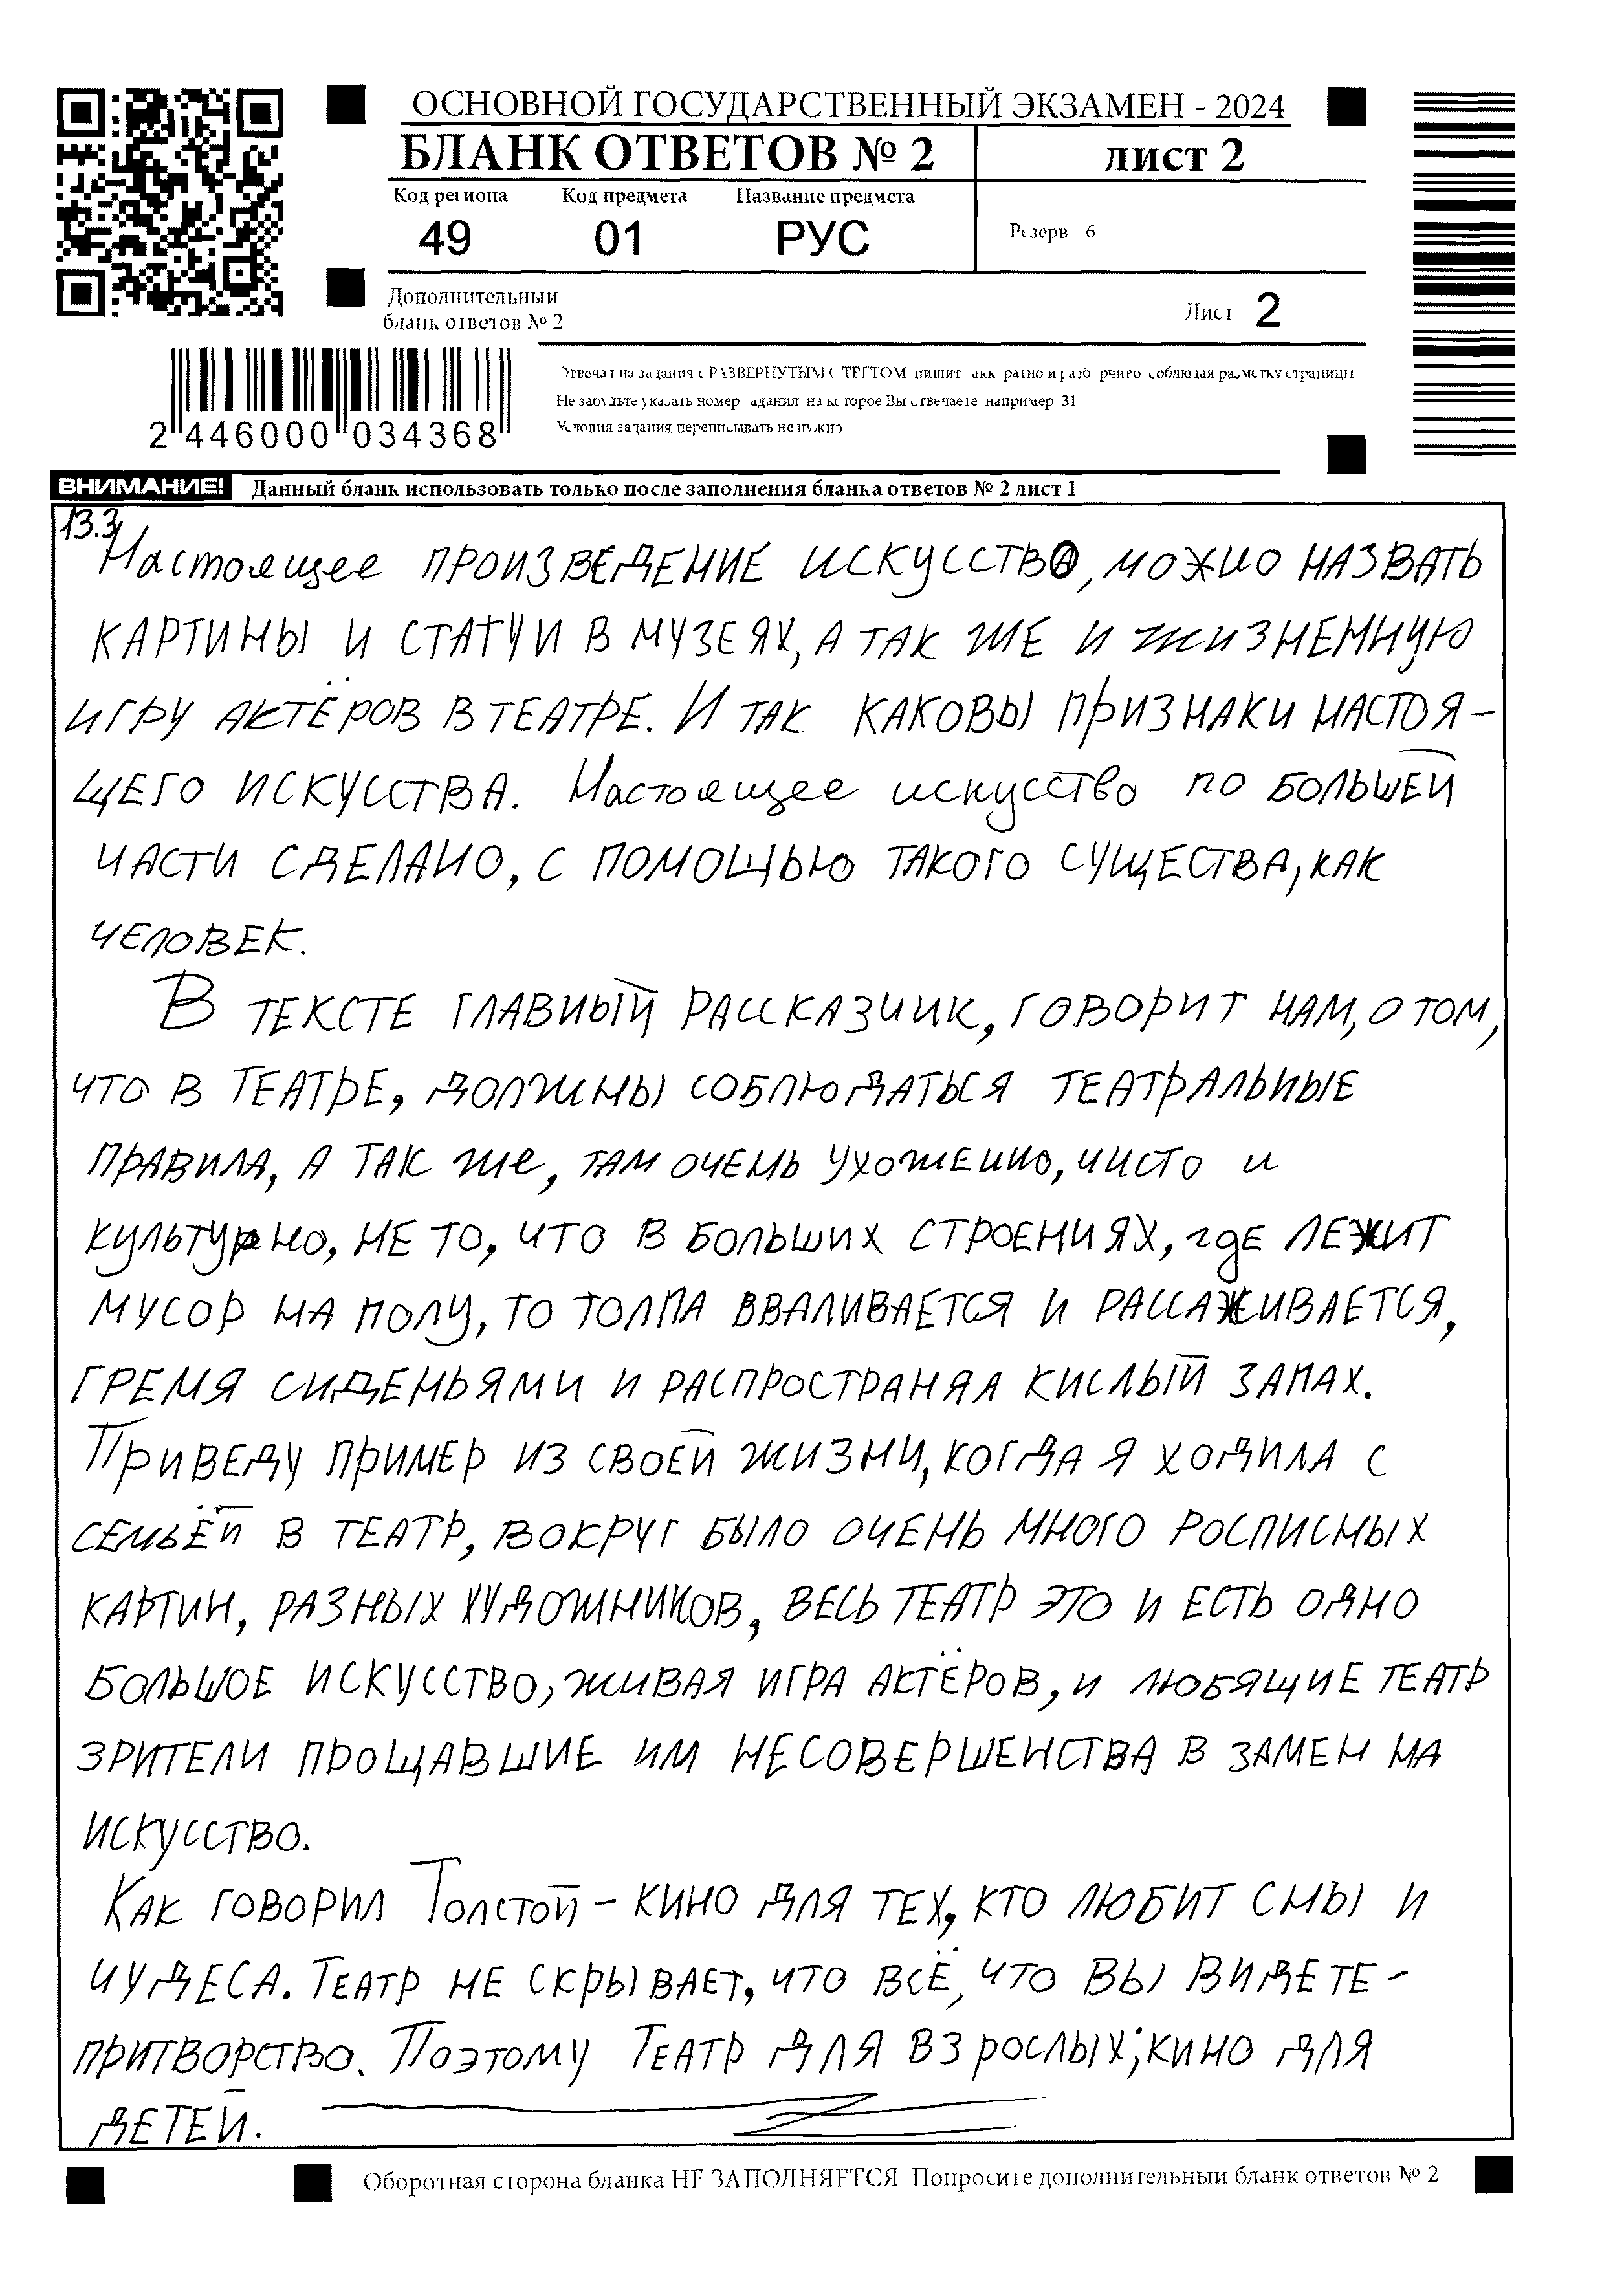 ОСНОВНОЙ ГОСУДАРСТВЕННЫЙ ЭКЗАМЕН - 2024
БЛАНК ОТВЕТОВ № 2
лист 2
Код региона Код предмета Название предмета
49 01 РУС
Резерв 6
Дополнительный
бланк ответов № 2
Лист 2
Отвечая на задания с РАЗВЕРНУТЫМ ОТВЕТОМ пишите аккуратно и разборчиво соблюдая разметку страницы
Не забудьте указать номер задания на которое Вы отвечаете например 31
Условия задания переписывать не нужно
2 446000 034368
ВНИМАНИЕ! Данный бланк использовать только после заполнения бланка ответов № 2 лист 1
13.3
Настоящее произведение искусства, можно назвать
картины и статуи в музеях, а так же и жизненную
игру актёров в театре. И так каковы признаки настоя-
щего искусства. Настоящее искусство по большей
части сделано, с помощью такого существа, как
человек.
В тексте главный рассказчик, говорит нам, о том,
что в театре, должны соблюдаться театральные
правила, а так же, там очень ухоженно, чисто и
культурно, не то, что в больших строениях, где лежит
мусор на полу, то толпа вваливается и рассаживается,
гремя сиденьями и распространяа кислый запах.
Приведу пример из своей жизни, когда я ходила с
семьёй в театр, вокруг было очень много росписных
картин, разных художников, весь театр это и есть одно
большое искусство, живая игра актёров, и любящие театр
зрители прощавшие им несовершенства в замен на
искусство.
Как говорил Толстой – кино для тех, кто любит сны и
чудеса. Театр не скрывает, что всё, что вы видете -
притворство. Поэтому Театр для взрослых; кино для
детей.
Оборотная сторона бланка НЕ ЗАПОЛНЯЕТСЯ Попросите дополнительный бланк ответов № 2